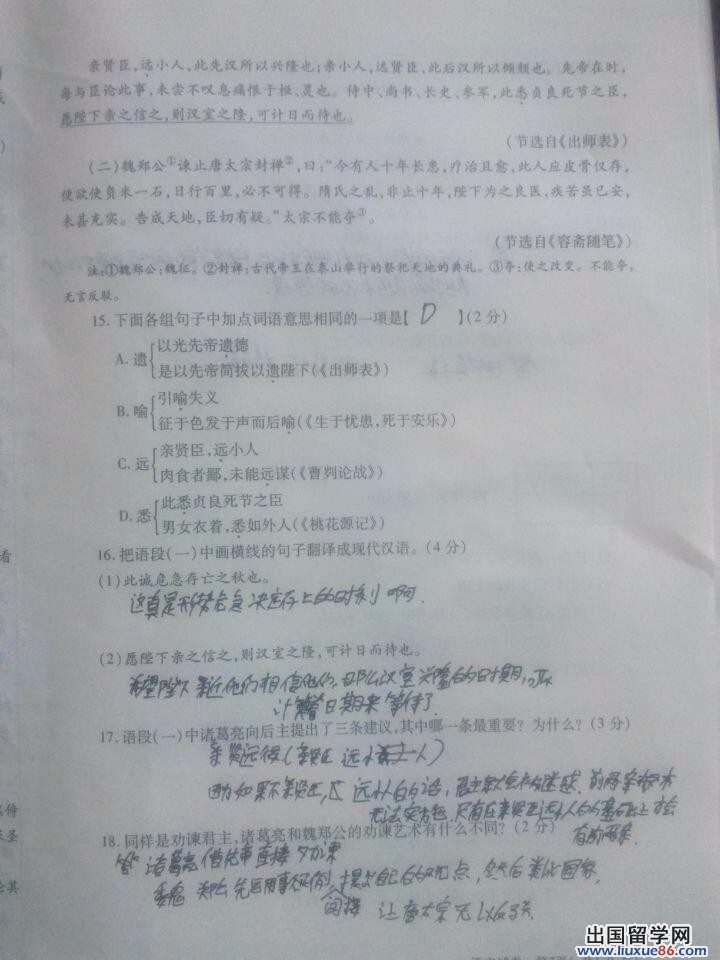 亲贤臣，远小人，此先汉所以兴隆也；亲小人，远贤臣，此后汉所以倾颓也。先帝在时，
每与臣论此事，未尝不叹息痛恨于桓、灵也。侍中、尚书、长史、参军，此悉贞良死节之臣，
愿陛下亲之信之，则汉室之隆，可计日而待也。
(节选自《出师表》)
(二)魏郑公①谏止唐太宗封禅②，曰：“今有人十年长患，疗治且愈，此人应皮骨仅存，
便欲使负米一石，日行百里，必不可得。隋氏之乱，非止十年，陛下为之良医，疾苦虽已安，
未甚充实。告成天地，臣切有疑。”太宗不能夺③。
(节选自《容斋随笔》)
注：①魏郑公：魏征。②封禅：古代帝王在泰山举行的祭祀天地的典礼。③夺：使之改变。不能夺，
无言反驳。
15.下面各组句子中加点词语意思相同的一项是【 D 】(2分)
A.遗 以光先帝遗德
是以先帝简拔以遗陛下(《出师表》)
B.喻 引喻失义
征于色发于声而后喻(《生于忧患，死于安乐》)
C.远 亲贤臣，远小人
肉食者鄙，未能远谋(《曹刿论战》)
D.悉 此悉贞良死节之臣
男女衣着，悉如外人(《桃花源记》)
16.把语段(一)中画横线的句子翻译成现代汉语。(4分)
(1)此诚危急存亡之秋也。
这真是形势危急决定存亡的时刻啊.
(2)愿陛下亲之信之，则汉室之隆，可计日而待也。
希望陛下亲近他们相信他们，那么汉室兴隆的日期，可以
计算着日期来等待了
17.语段(一)中诸葛亮向后主提出了三条建议，其中哪一条最重要？为什么？(3分)
亲贤远佞(亲贤臣 远小人)
因为如果不亲贤臣，远小人的话，君主就会被迷惑
无法实施，只有在亲贤臣远小人的基础上才会
18.同样是劝谏君主，诸葛亮和魏郑公的劝谏艺术有什么不同？(2分)
有前两条.
答 诸葛亮 直接 劝谏
提出自己的观点，然后 国家.
间接 让唐太宗无
出国留学网
www.liuxue86.com